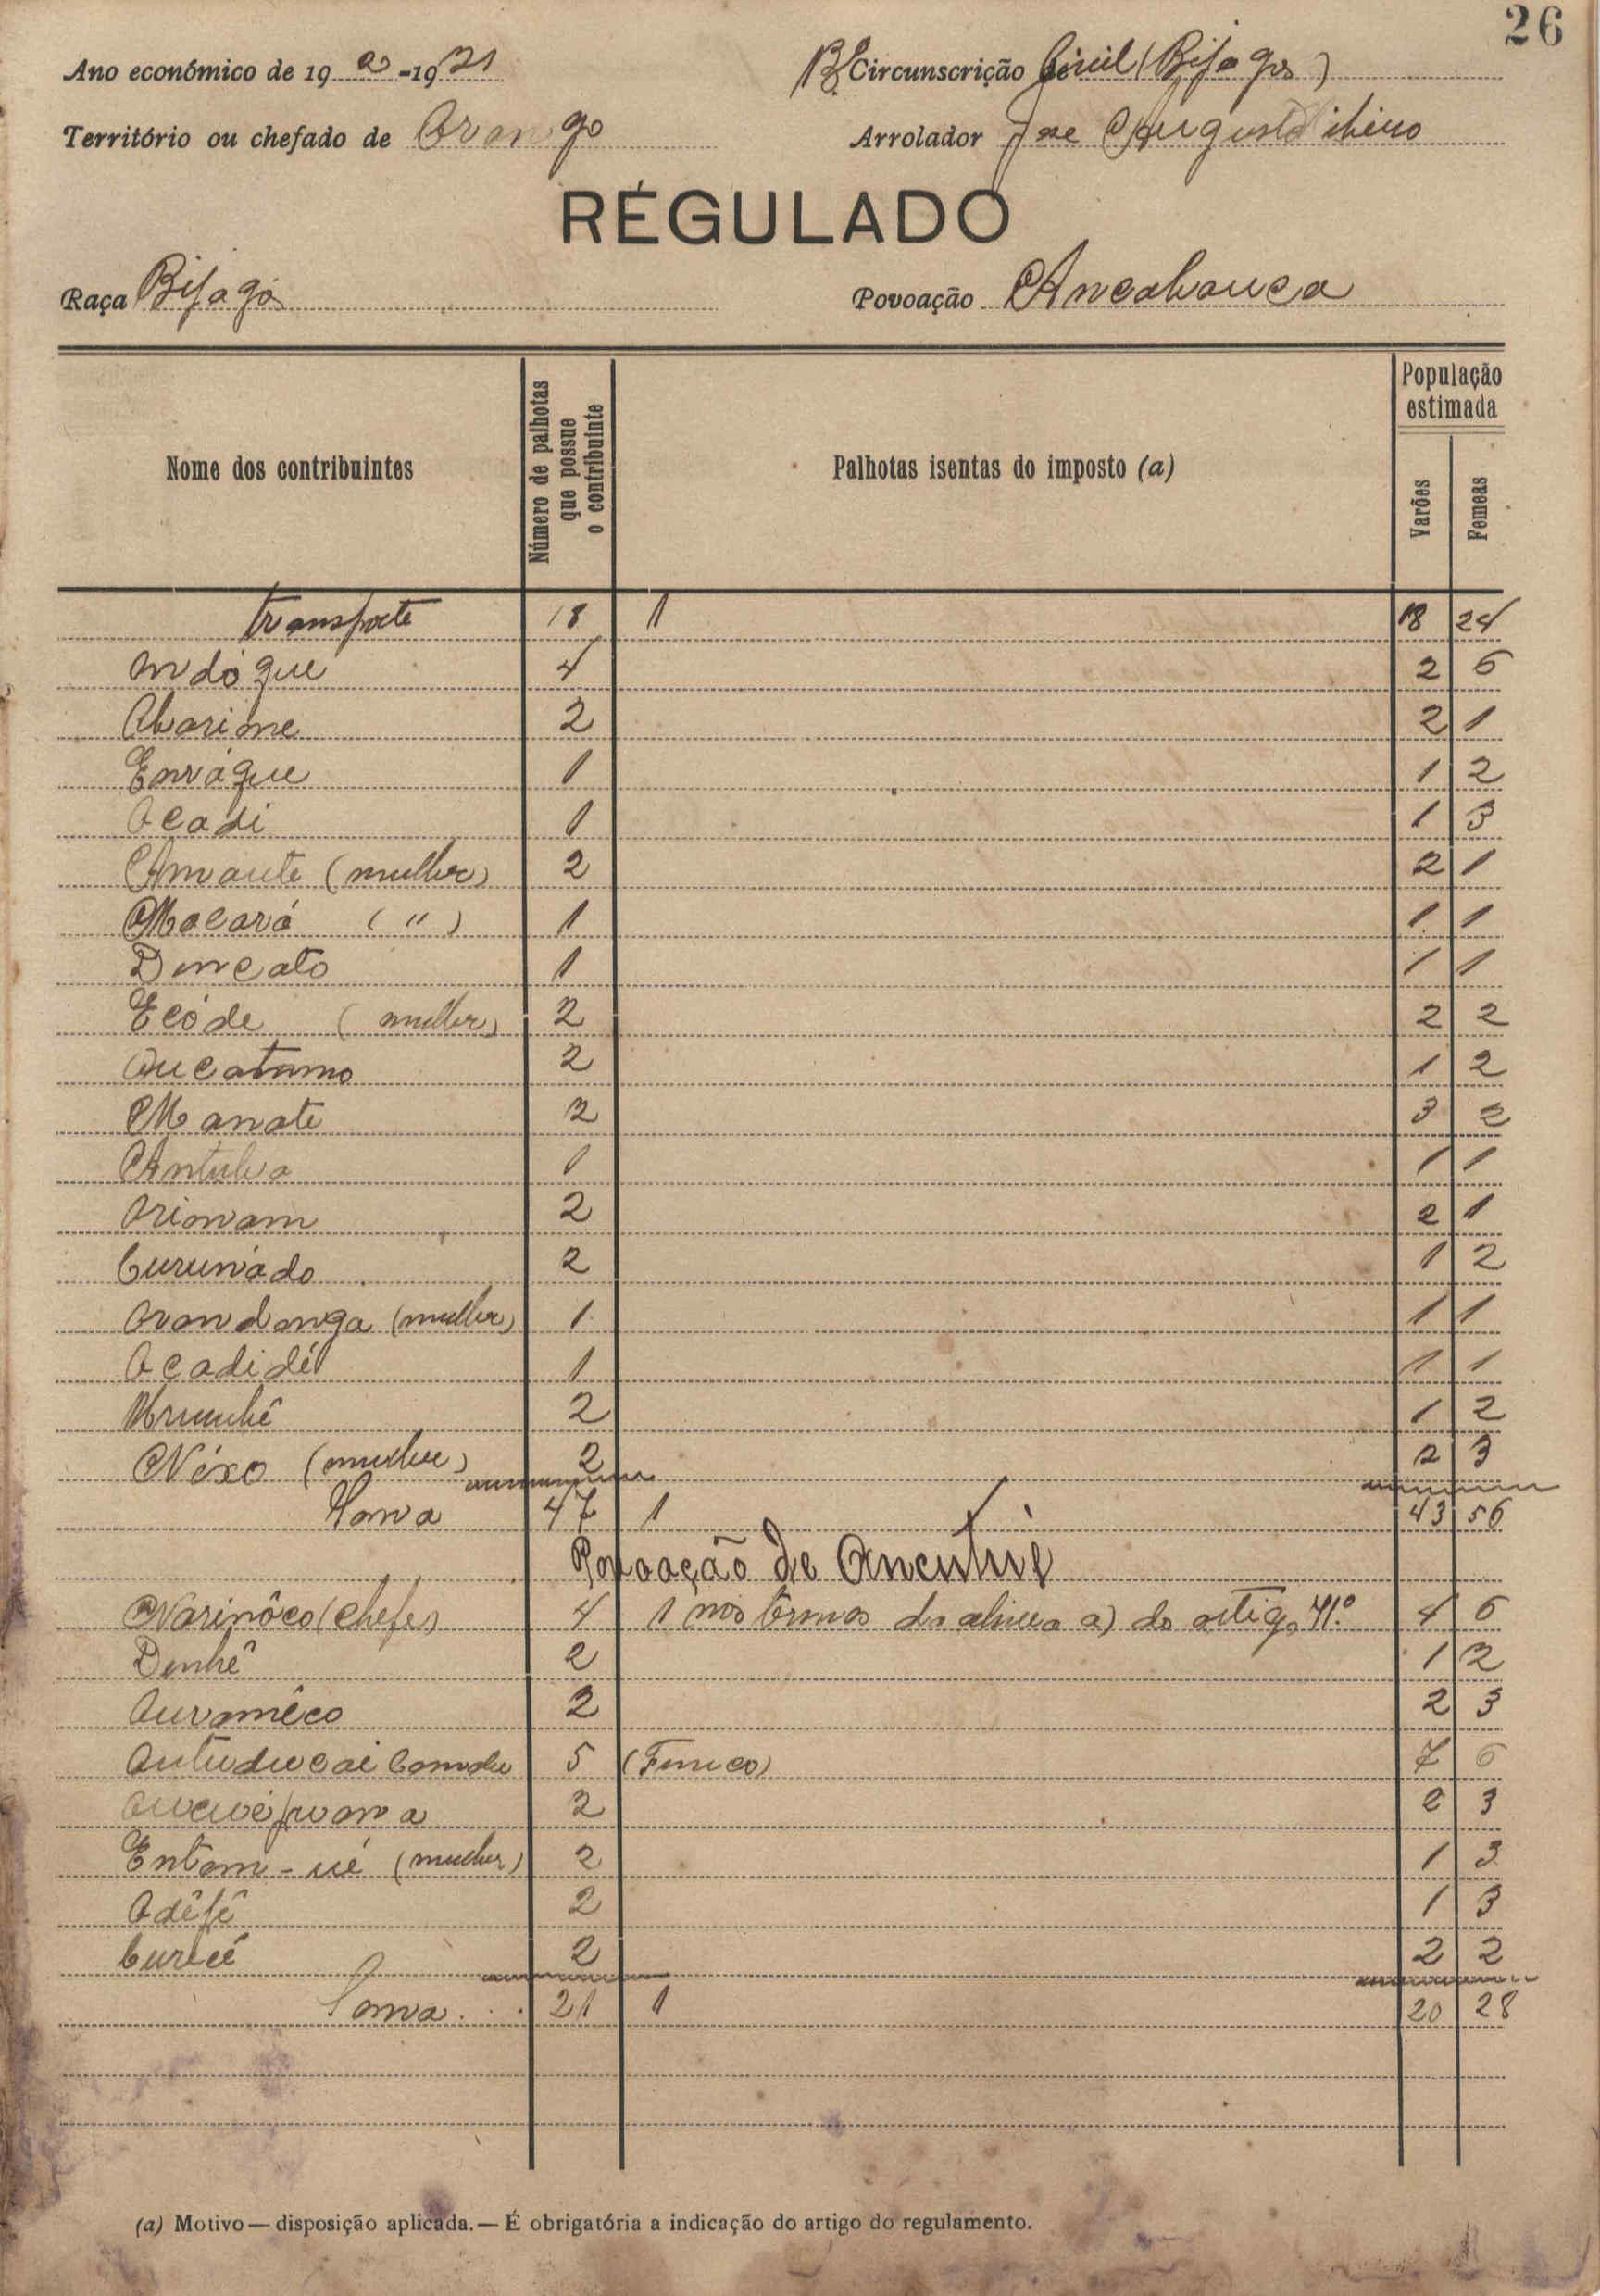 26
Ano económico de 1920-1921
Circunscrição Civil (Bijagos)
Território ou chefado de Orango
Arrolador José Augusto Ribeiro
RÉGULADO
Raça Bijagós
Povoação Ancabouca
Nome dos contribuintes
Número de palhotas que possue o contribuinte
Palhotas isentas do imposto (a)
População estimada
Varões
Femeas
Transporte 18 1 18 24
Ondóque 4 2 6
Abarime 2 2 1
Envaque 1 1 2
Ocadi 1 1 3
(mulher) 2 2 1
Macará ( " ) 1 1 1
Dincato 1 1 1
Ecóde (mulher) 2 2 2
Oucatamo 2 1 2
Manate 2 3 2
Antuba 1 1 1
Orionam 2 2 1
Curunádo 2 1 2
Orandanga (mulher) 1 1 1
Ocadidé 1 1 1
2 1 2
Néxo (mulher) 2 2 3
Soma 47 1 43 56
Povoação de
Narinôco (chefe) 4 1 nos termos da alinea a) do artigo 41.º 4 6
Denhê 2 1 2
Ouramêco 2 2 3
5 7 6
2 2 3
Entam-ué (mulher) 2 1 3
Odêfê 2 1 3
2 2 2
Soma . . . 21 1 20 28
(a) Motivo — disposição aplicada. — É obrigatória a indicação do artigo do regulamento.